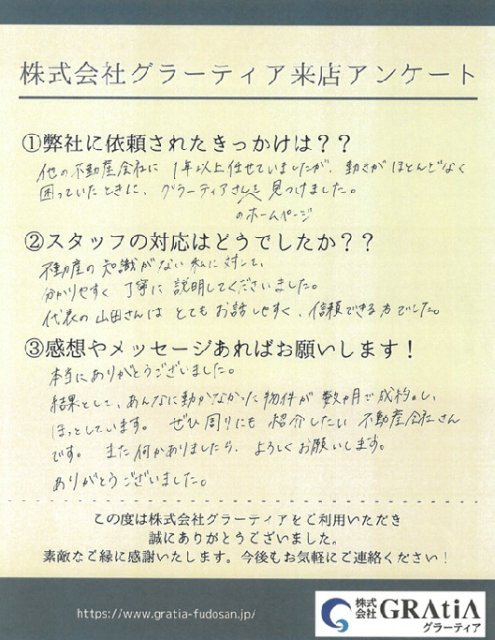 株式会社グラーティア来店アンケート
①弊社に依頼されたきっかけは？？
他の不動産会社に 1年以上任せていましたが、動きがほとんどなく
困っていたときに、グラーティアさんを見つけました。
のホームページ
②スタッフの対応はどうでしたか？？
不動産の知識がない私に対して、
分かりやすく丁寧に説明してくださいました。
代表の山田さんはとてもお話しやすく、信頼できる方でした。
③感想やメッセージあればお願いします！
本当にありがとうございました。
結果として、あんなに動かなかった物件が数ヶ月で成約し、
ほっとしています。ぜひ周りにも紹介したい不動産会社さん
です。また何かありましたら、よろしくお願いします。
ありがとうございました。
この度は株式会社グラーティアをご利用いただき
誠にありがとうございました。
素敵なご縁に感謝いたします。今後もお気軽にご連絡ください！
https://www.gratia-fudosan.jp/
株式会社 GRAtiA
グラーティア